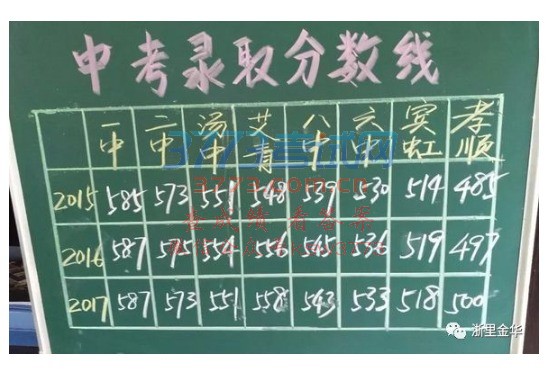 中考录取分数线
一中 二中 汤中 艾青 八中 六中 宾虹 孝顺
2015 585 573 551 548 537 530 514 485
2016 587 575 554 556 545 531 519 497
2017 587 573 551 558 543 533 518 500
3773考试网
www.3773.com.cn
查成绩 看答案
浙里金华